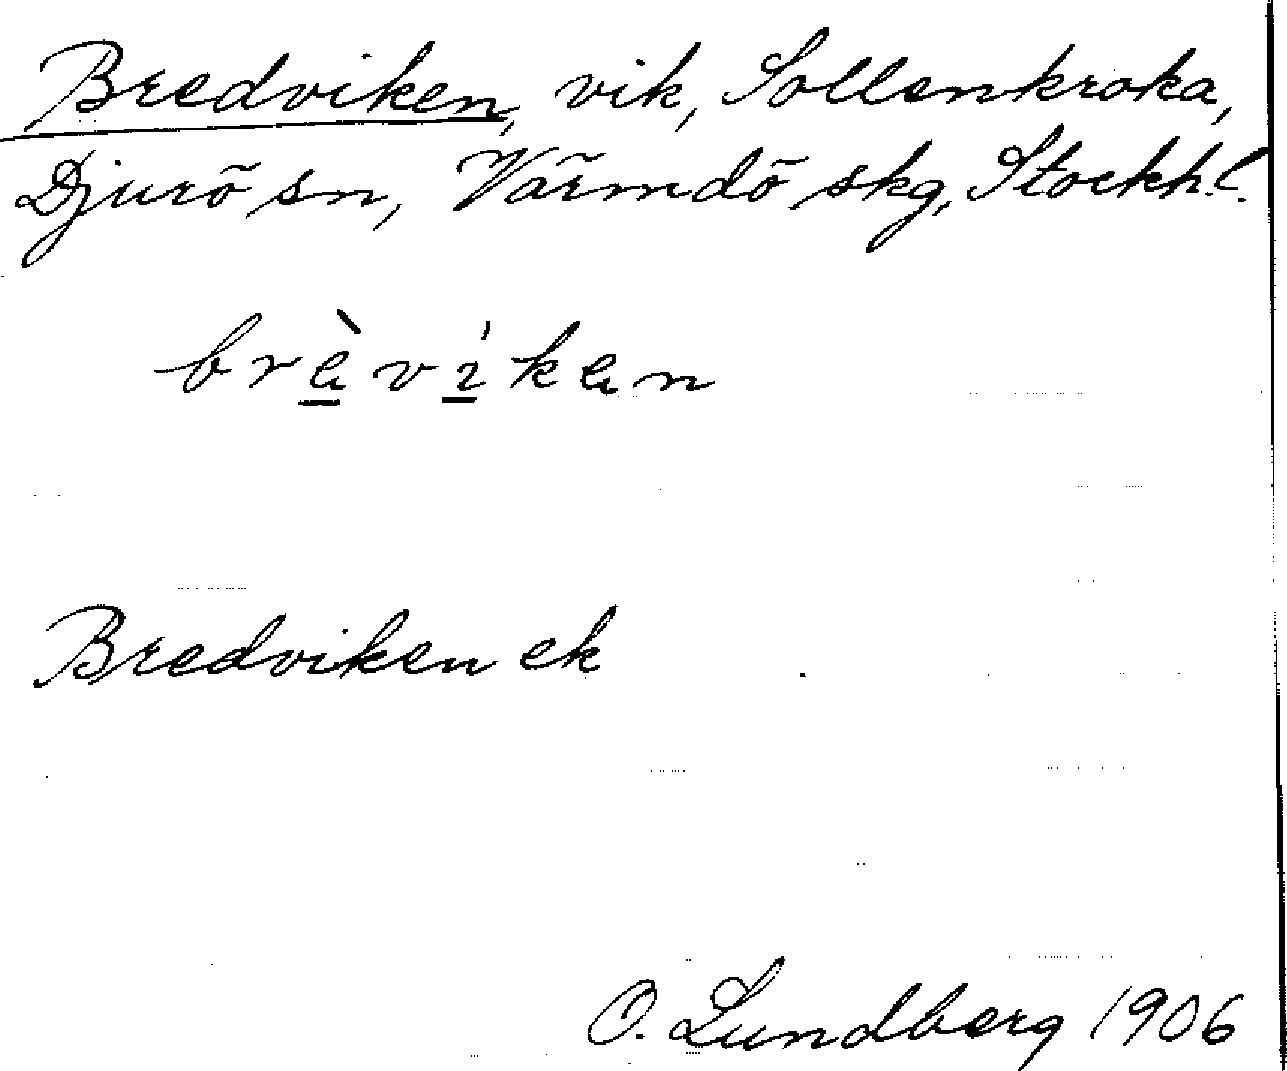 Bredviken, vik, Sollenkroka,
Djurö sn, Värmdö skg, Stockh. l.
brèvíken
Bredviken ek
O. Lundberg 1906